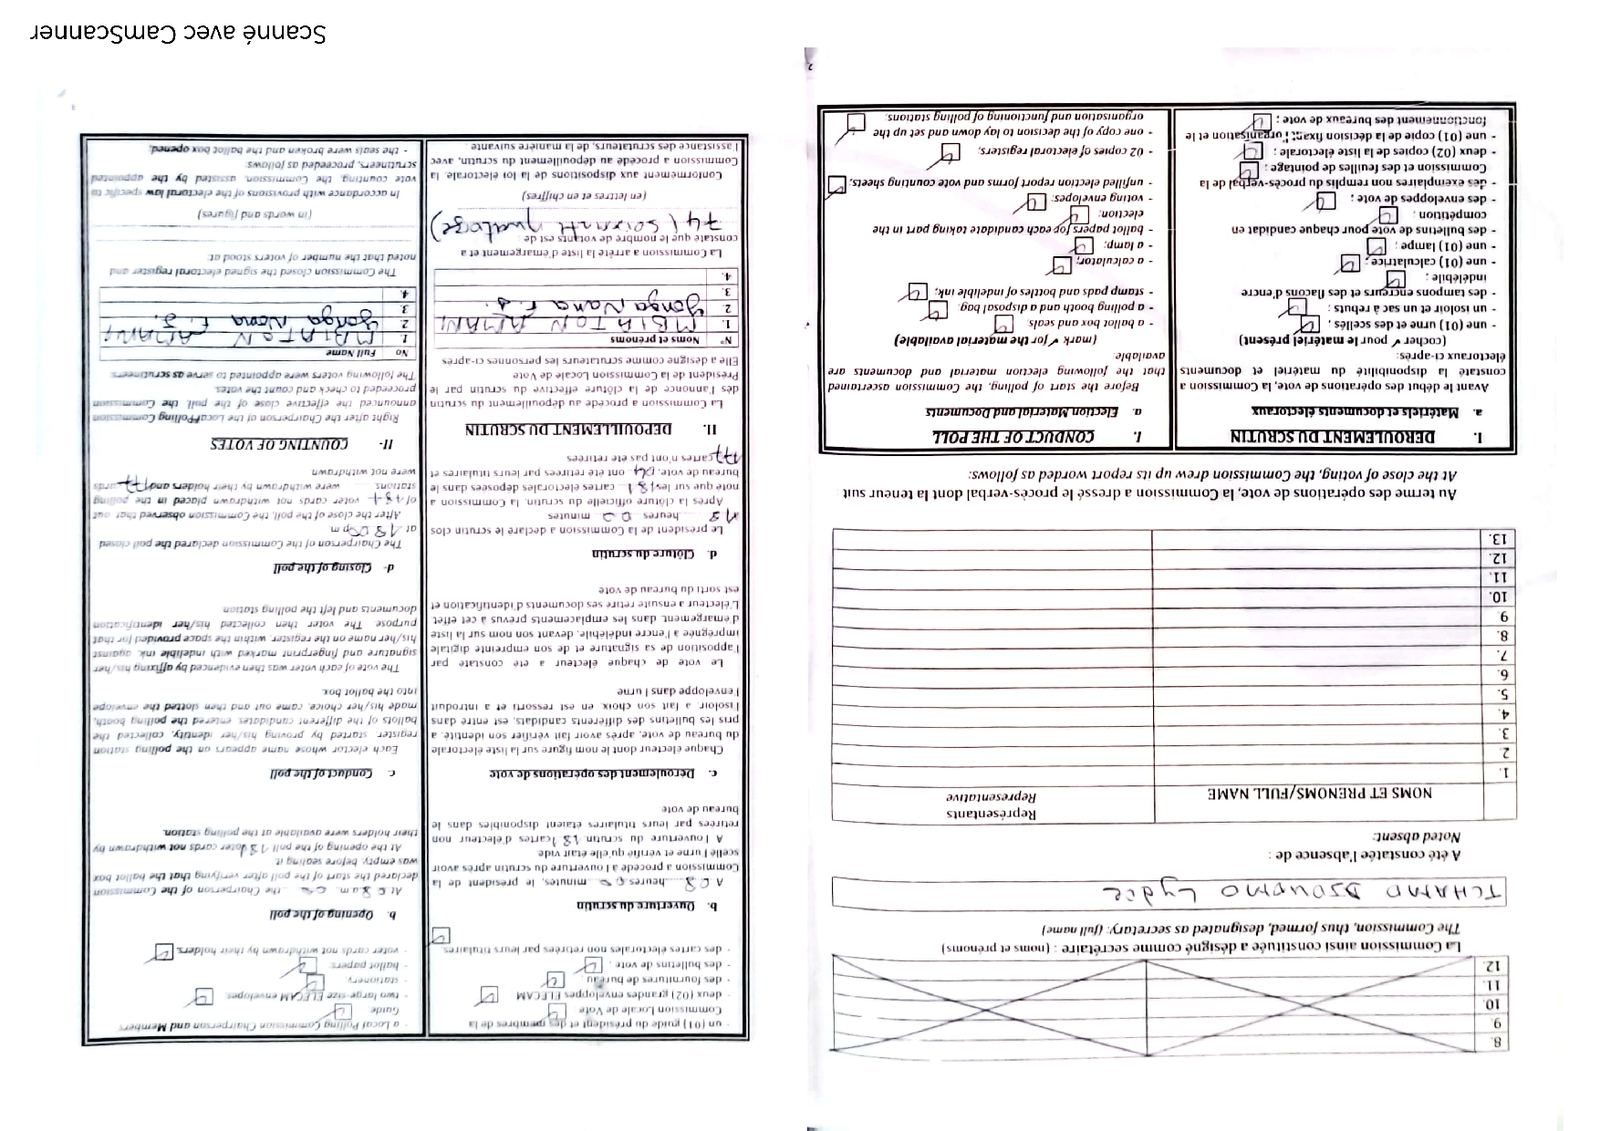 8
9
10
11
12
La Commission ainsi constituée a désigné comme secrétaire : (noms et prénoms)
The Commission, thus formed, designated as secretary: (full name)
TCHAMO DJOUMO Lydie
A été constatée l'absence de :
Noted absent:
NOMS ET PRENOMS/FULL NAME
Représentants
Representative
1.
2
3.
4.
5.
6.
7.
8.
9
10.
11
12.
13.
Au terme des opérations de vote, la Commission a dressé le procès-verbal dont la teneur suit
At the close of voting, the Commission drew up its report worded as follows:
I. DEROULEMENT DU SCRUTIN
a. Matériels et documents électoraux
Avant le début des opérations de vote, la Commission a
constaté la disponibilité du matériel et documents
électoraux ci-après:
(cocher ✓ pour le matériel présent)
- une (01) urne et des scellés ;
- un isoloir et un sac à rebuts ;
- des tampons encreurs et des flacons d'encre
indélébile ;
- une (01) calculatrice ;
- une (01) lampe ;
- des bulletins de vote pour chaque candidat en
compétition ;
- des enveloppes de vote ;
- des exemplaires non remplis du procès-verbal de la
Commission et des feuilles de pointage ;
- deux (02) copies de la liste électorale ;
- une (01) copie de la décision fixant l'organisation et le
fonctionnement des bureaux de vote ;
I. CONDUCT OF THE POLL
a. Election Material and Documents
Before the start of polling, the Commission ascertained
that the following election material and documents are
available:
(mark ✓ for the material available)
- a ballot box and seals;
- a polling booth and a disposal bag;
- stamp pads and bottles of indelible ink;
- a calculator;
- a lamp;
- ballot papers for each candidate taking part in the
election;
- voting envelopes;
- unfilled election report forms and vote counting sheets;
- 02 copies of electoral registers;
- one copy of the decision to lay down and set up the
organisation and functioning of polling stations.
- un (01) guide du président et des membres de la
Commission Locale de Vote
- deux (02) grandes enveloppes ELECAM
- des fournitures de bureau
- des bulletins de vote ;
- des cartes électorales non retirées par leurs titulaires
b. Ouverture du scrutin
A 08 heures 00 minutes, le président de la
Commission a procédé à l'ouverture du scrutin après avoir
scellé l'urne et vérifié qu'elle était vide
A l'ouverture du scrutin 181 cartes d'électeur non
retirées par leurs titulaires étaient disponibles dans le
bureau de vote
c. Déroulement des opérations de vote
Chaque électeur dont le nom figure sur la liste électorale
du bureau de vote, après avoir fait vérifier son identité, a
pris les bulletins des différents candidats, est entré dans
l'isoloir, a fait son choix en est ressorti et a introduit
l'enveloppe dans l'urne
Le vote de chaque électeur a été constaté par
l'apposition de sa signature et de son empreinte digitale
imprégnée à l'encre indélébile, devant son nom sur la liste
d'émargement, dans les emplacements prévus à cet effet
L'électeur a ensuite retiré ses documents d'identification et
est sorti du bureau de vote
d. Clôture du scrutin
Le président de la Commission a déclaré le scrutin clos
18 heures 00 minutes
Après la clôture officielle du scrutin, la Commission a
noté que sur les 181 cartes électorales déposées dans le
bureau de vote, 04 ont été retirées par leurs titulaires et
177 cartes n'ont pas été retirées
II. DEPOUILLEMENT DU SCRUTIN
La Commission a procédé au dépouillement du scrutin
dès l'annonce de la clôture effective du scrutin par le
Président de la Commission Locale de Vote
Elle a désigné comme scrutateurs les personnes ci-après
N° Noms et prénoms
1. MBIATON AMAN
2 Yonga Nana F.J.
3.
4.
La Commission a arrêté la liste d'émargement et a
constaté que le nombre de votants est de
74 (soixante quatorze)
(en lettres et en chiffres)
Conformément aux dispositions de la loi électorale, la
Commission a procédé au dépouillement du scrutin, avec
l'assistance des scrutateurs, de la manière suivante
- a Local Polling Commission Chairperson and Members
Guide
- two large-size ELECAM envelopes
- stationery
- ballot papers
- voter cards not withdrawn by their holders.
b. Opening of the poll
At 08 a.m. 00 the Chairperson of the Commission
declared the start of the poll after verifying that the ballot box
was empty, before sealing it
At the opening of the poll 181 voter cards not withdrawn by
their holders were available at the polling station.
c. Conduct of the poll
Each elector whose name appears on the polling station
register started by proving his/her identity, collected the
ballots of the different candidates, entered the polling booth,
made his/her choice, came out and then slotted the envelope
into the ballot box
The vote of each voter was then evidenced by affixing his/her
signature and fingerprint marked with indelible ink, against
his/her name on the register, within the space provided for that
purpose. The voter then collected his/her identification
documents and left the polling station
d- Closing of the poll
The Chairperson of the Commission declared the poll closed
at 18 00 p m
After the close of the poll, the Commission observed that out
of 181 voter cards not withdrawn placed in the polling
stations were withdrawn by their holders and 177 cards
were not withdrawn
II- COUNTING OF VOTES
Right after the Chairperson of the Local Polling Commission
announced the effective close of the poll, the Commission
proceeded to check and count the votes.
The following voters were appointed to serve as scrutineers:
No Full Name
1. MBIATON AMAN
2 Yonga Nana F. J.
3
4
The Commission closed the signed electoral register and
noted that the number of voters stood at:
(in words and figures)
In accordance with provisions of the electoral law specific to
vote counting, the Commission, assisted by the appointed
scrutineers, proceeded as follows:
- the seals were broken and the ballot box opened,
Scanné avec CamScanner